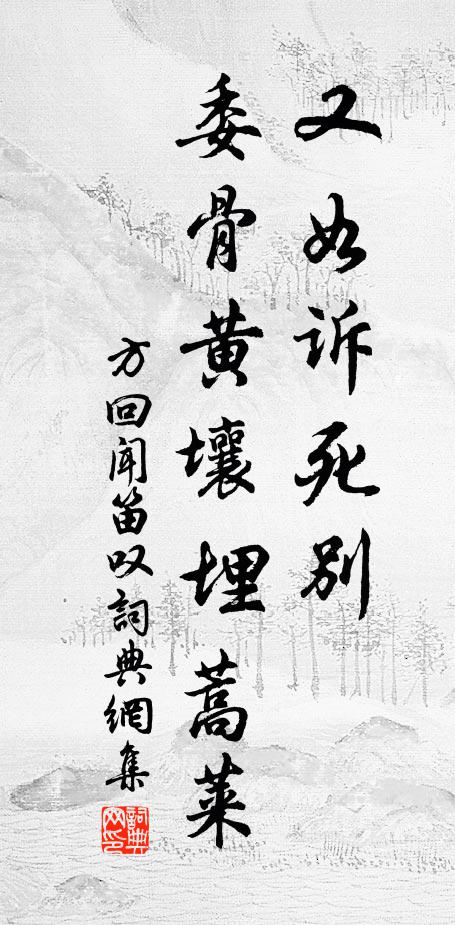 又如诉死别
委骨黄壤埋蒿莱
方回闻笛叹詞典網集
詞典网印